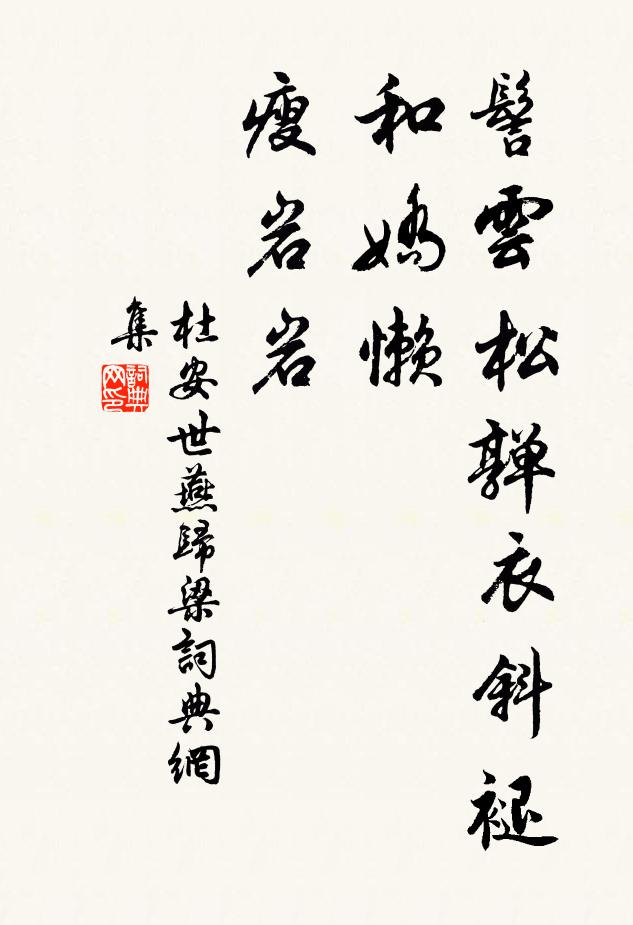 髻雲松嚲衣斜褪
和嬌懶
瘦岩岩
杜安世燕歸梁詞典網
集
詞典
网印